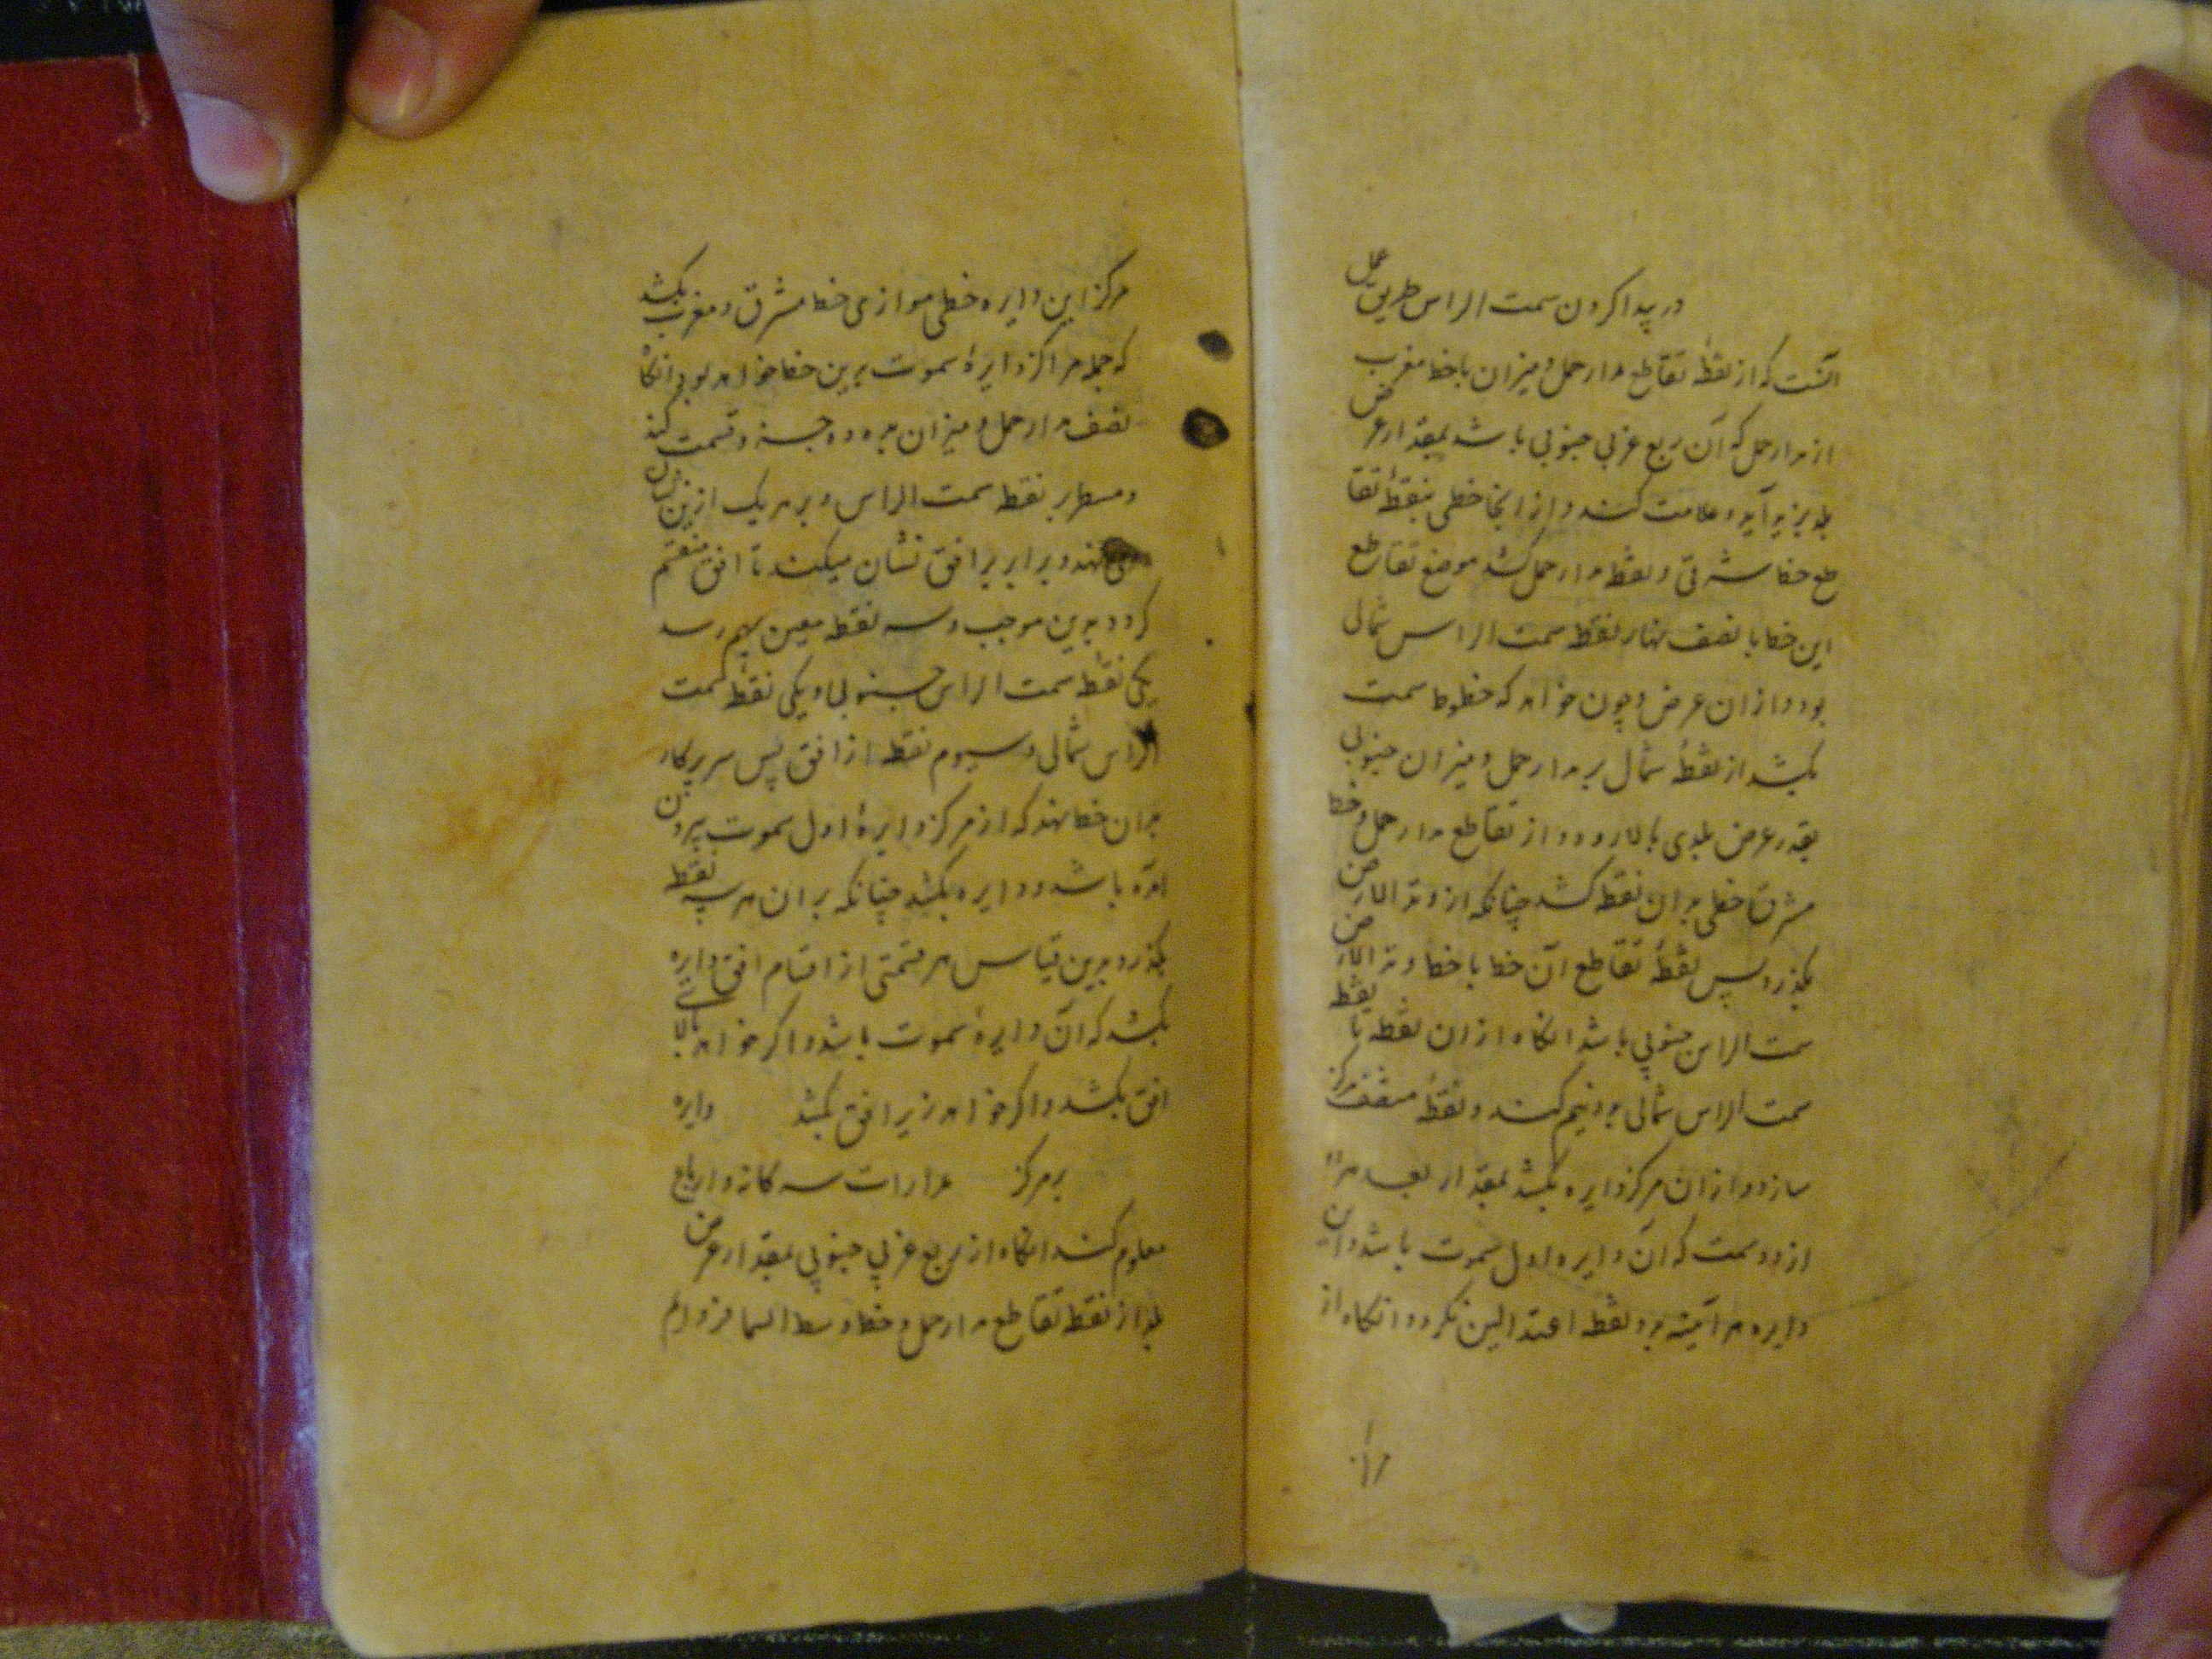 در پیدا کردن سمت الراس طریق عمل
آنست که از نقطه تقاطع مدار حمل و میزان با خط مغرب
از مدار حمل که آن ربع غربی جنوبی باشد بمقدار عرض
بلد بزیر آید و علامت کنند و از انجا خطی بنقطه تقا
طع خط شرقی و نقطه مدار حمل کشد موضع تقاطع
این خط با نصف نهار نقطه سمت الراس شمالی
بود و ازان عرض و چون خواهد که خطوط سمت
بکشد از نقطه شمال بر مدار حمل و میزان جنوبی
بقدر عرض بلدی بالا رود و از تقاطع مدار حمل و خط
مشرق خطی بران نقطه کشد چنانکه از وتد الارض
بگذرد پس نقطه تقاطع آن خط با خط وتد الارض نقطه
سمت الراس جنوبی باشد انگاه ازان نقطه تا
سمت الراس شمالی بدو نیم کنند و نقطه منصف مرکز
سازد و ازان مرکز دایره بکشد بمقدار بعد هر
از دو سمت که آن دایره اول سموت باشد و این
دایره هر آینه بدو نقطه اعتدالین بگردد و انگاه از
مرکز این دایره خطی موازی خط مشرق و مغرب بکشد
که جمله مراکز دایرۀ سموت برین خط خواهد بود انگاه
نصف مدار حمل و میزان به ده جزو قسمت کند
و مسطر بر نقطه سمت الراس و بر هر یک ازین
نهد و برابر بر افق نشان میکند تا افق منقسم
گردد بدین موجب و سه نقطه معین بهم رسد
یکی نقطه سمت الراس جنوبی و یکی نقطه سمت
الراس شمالی و سیوم نقطه از افق پس سر پرکار
بران خط نهد که از مرکز دایرۀ اول سموت بیرون
آمده باشد و دایره بکشد چنانکه بران هر سه نقطه
بگذرد برین قیاس هر قسمتی از اقسام افق دایره
بکشد که آن دایرۀ سموت باشد و اگر خواهد بالای
افق بکشد و اگر خواهد زیر افق بکشد دایره
بر مرکز مدارات سه گانه و ارباع
معلوم کند انگاه از ربع غربی جنوبی بمقدار عرض
بلد از نقطه تقاطع مدار حمل و خط وسط السما فرود آیم